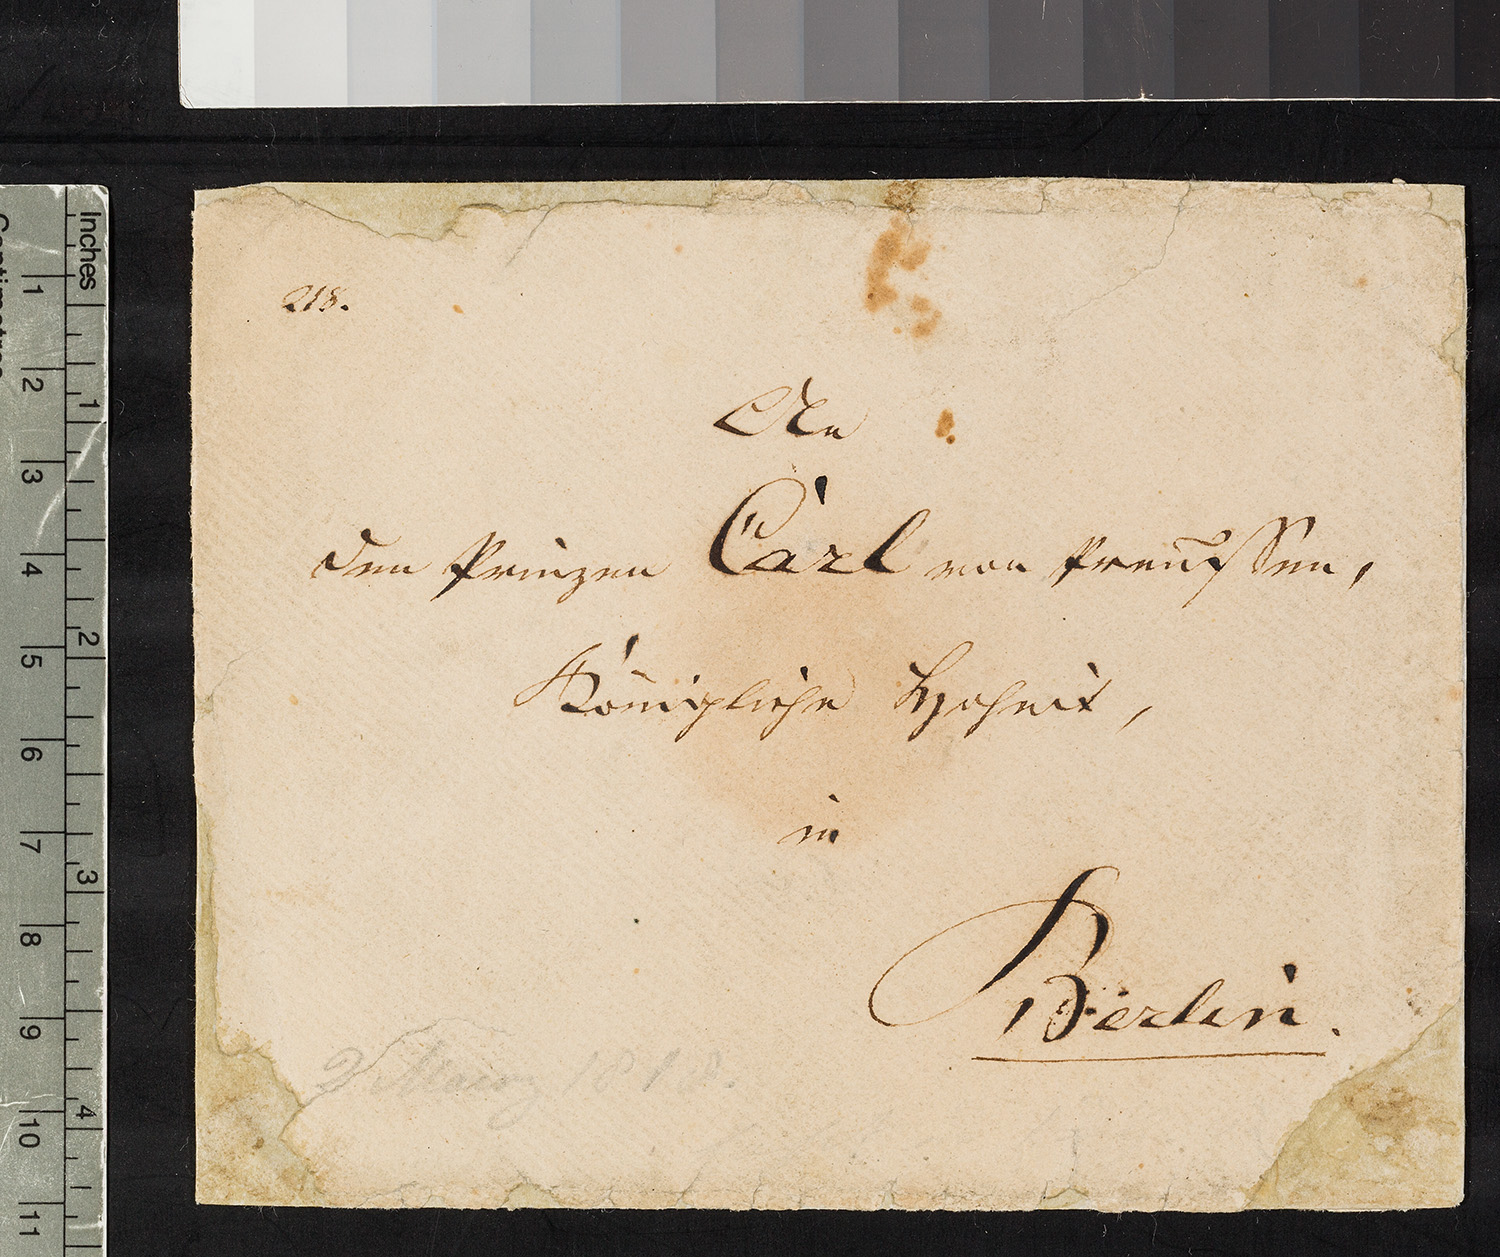 218.
An
den Prinzen Carl von Preußen,
Königliche Hoheit,
in
Berlin.
2 Maerz 1818.
Inches
1
2
3
4
Centimetres
1
2
3
4
5
6
7
8
9
10
11